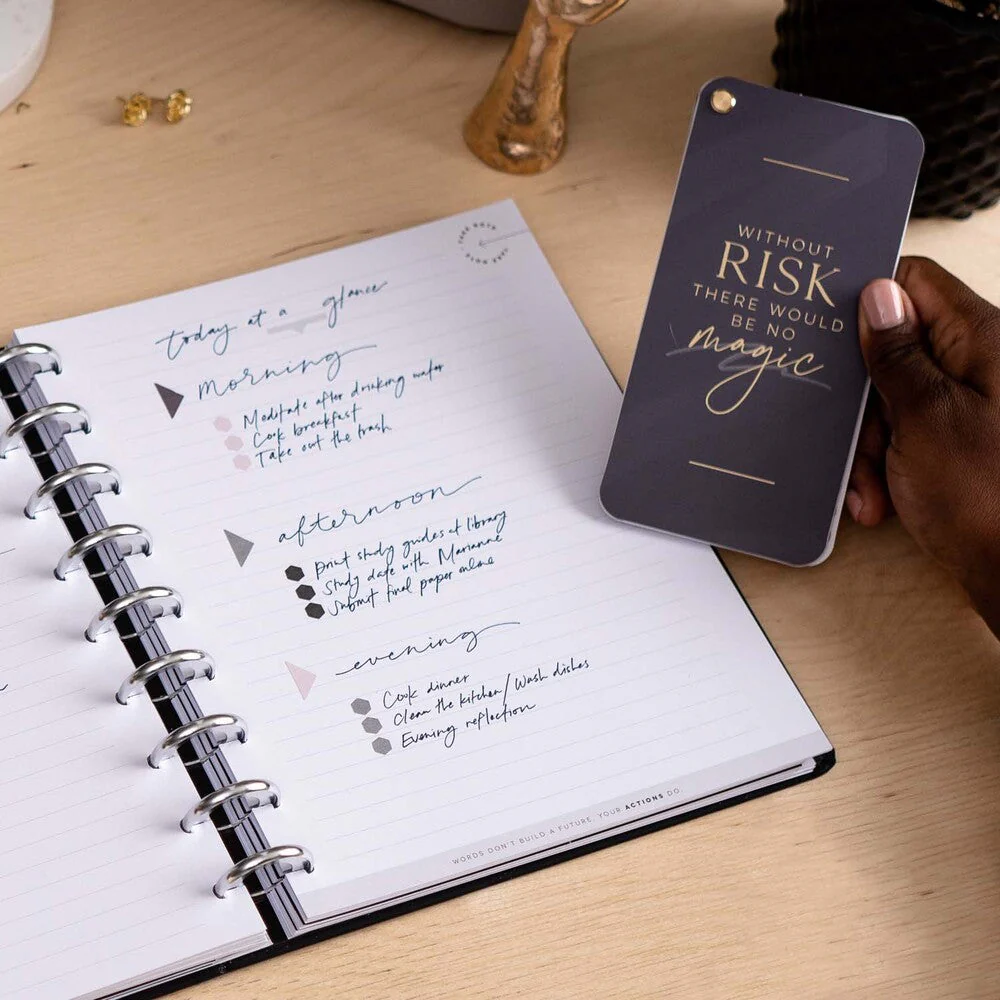 TAKE NOTE
TAKE NOTE
today at a glance
morning
Meditate after drinking water
Cook breakfast
Take out the trash
afternoon
print study guides at library
Study date with Marianne
Submit final paper online
evening
Cook dinner
Clean the kitchen / Wash dishes
Evening reflection
WORDS DON'T BUILD A FUTURE, YOUR ACTIONS DO.
WITHOUT
RISK
THERE WOULD
BE NO
magic